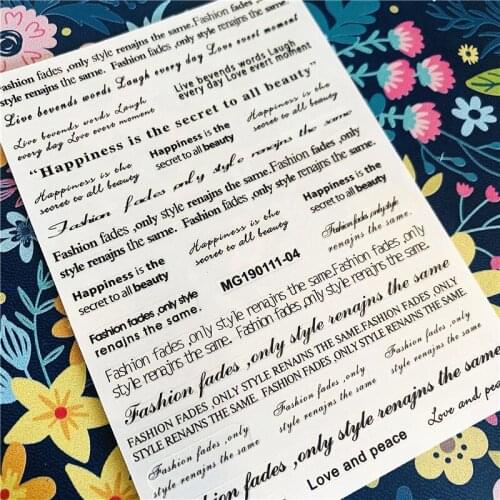 Fashion fades ,only style renajns the same. Fashion
Fashion fades ,only style renajns the same.
style renajns the same. Fashion fades ,only
Live bevends words Laugh every day Love evert moment
Live bevends words Laugh
every day Love evert moment
Live bevends words Laugh
every day Love evert moment
"Happiness is the secret to all beauty"
Happiness is the
secret to all beauty
Happiness is the
secret to all beauty
Happiness is the
secret to all beauty
Fashion fades only style renajns the same
Fashion fades ,only style renajns the same.Fashion fades ,only
style renajns the same. Fashion fades ,only style renajns the same.
Happiness is the
secret to all beauty
Happiness is the
secret to all beauty
Happiness is the
secret to all beauty
Fashion fades ,only style
renajns the same.
MG190111-04
Fashion fades ,only style
renajns the same.
Fashion fades ,only style renajns the same.Fashion fades ,only
style renajns the same. Fashion fades ,only style renajns the same.
Fashion fades ,only style renajns the same
FASHION FADES ,ONLY STYLE RENAJNS THE SAME.FASHION FADES ,ONLY
STYLE RENAJNS THE SAME. FASHION FADES ,ONLY STYLE RENAJNS THE SAME.
Fashion fades ,only
style renajns the same.
Fashion fades ,only
style renajns the same.
Fashion fades ,only
style renajns the same.
Fashion fades ,only style renajns the same
Love and peace
Love and pea